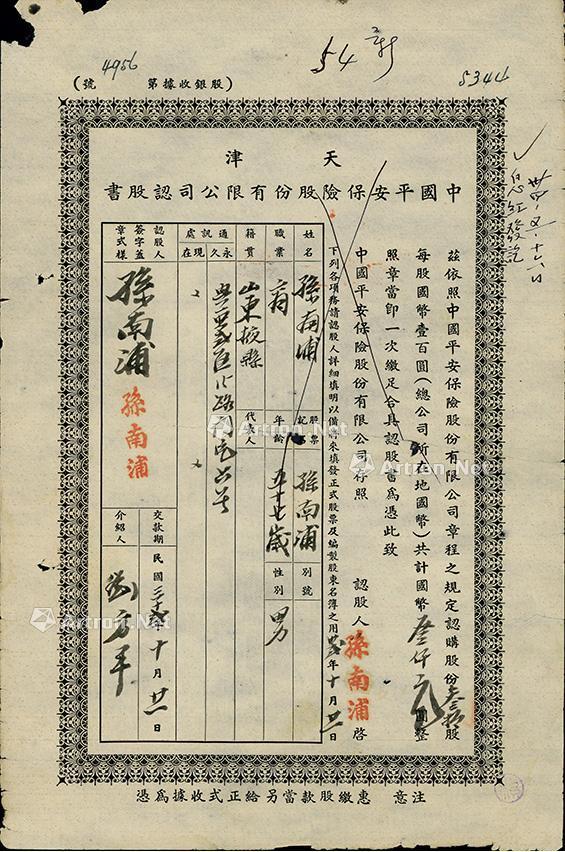 54
4956
5344
（號 第據收銀股）
天津
中國平安保險股份有限公司認股書
茲依照中國平安保險股份有限公司章程之規定認購股份叁拾股
每股國幣壹百圓（總公司所在地國幣）共計國幣叁仟元圓整
照章當即一次繳足合具認股書為憑此致
中國平安保險股份有限公司存照
認股人 孫南浦 啓
年十月廿一日
下列各項務請認股人詳細填明以備將來填發正式股票及編製股東名簿之用
姓名 孫南浦
股票記名 孫南浦
別號
職業 商
年齡 五十七歲
性別 男
籍貫 山東掖縣
代表人
通訊處 永久
現在
認股人簽字蓋章式樣 孫南浦 孫南浦
交款期 民國三十年十月廿一日
介紹人
注意 惠繳股款當另給正式收據爲憑
Artron.Net
Artron.Net
Artron.Net
Artron.Net